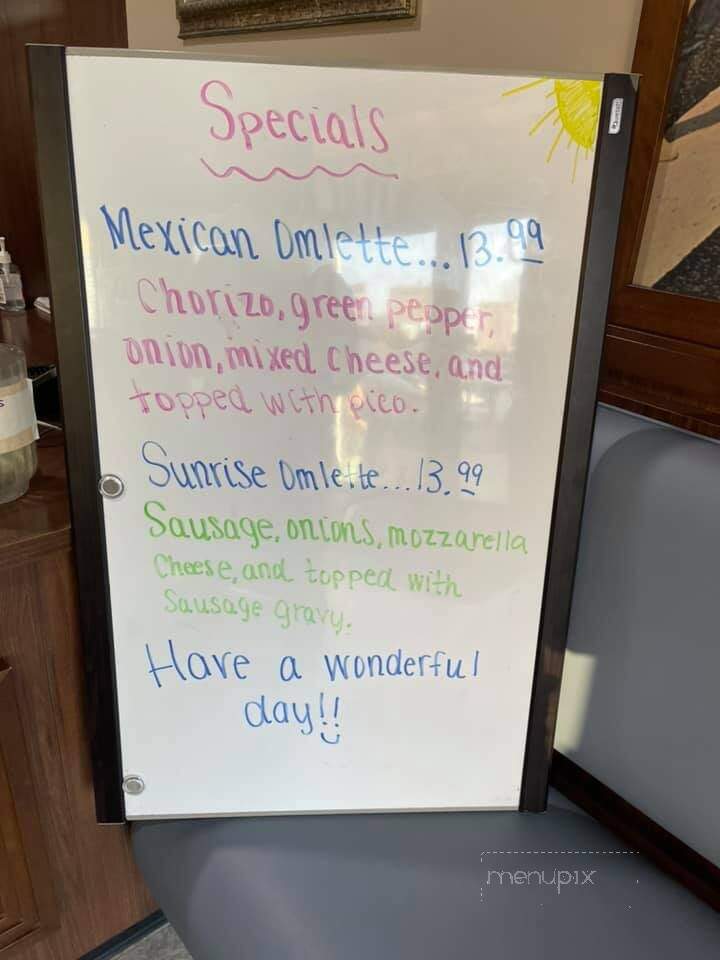 Specials
Mexican Omlette... 13.99
Chorizo, green pepper,
onion, mixed cheese, and
topped with pico.
Sunrise Omlette... 13.99
Sausage, onions, mozzarella
Cheese, and topped with
Sausage gravy.
Have a wonderful
day!!
menupix